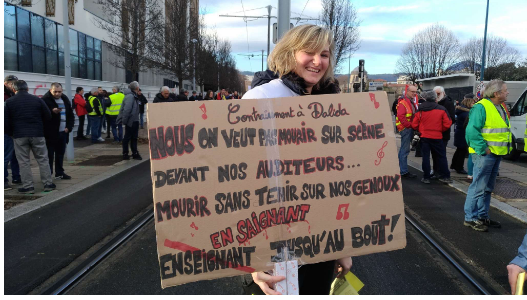 Contrairement à Dalida
NOUS ON VEUT PAS MOURIR SUR SCÈNE
DEVANT NOS AUDITEURS...
MOURIR SANS TENIR SUR NOS GENOUX
EN SAIGNANT
ENSEIGNANT JUSQU'AU BOUT!